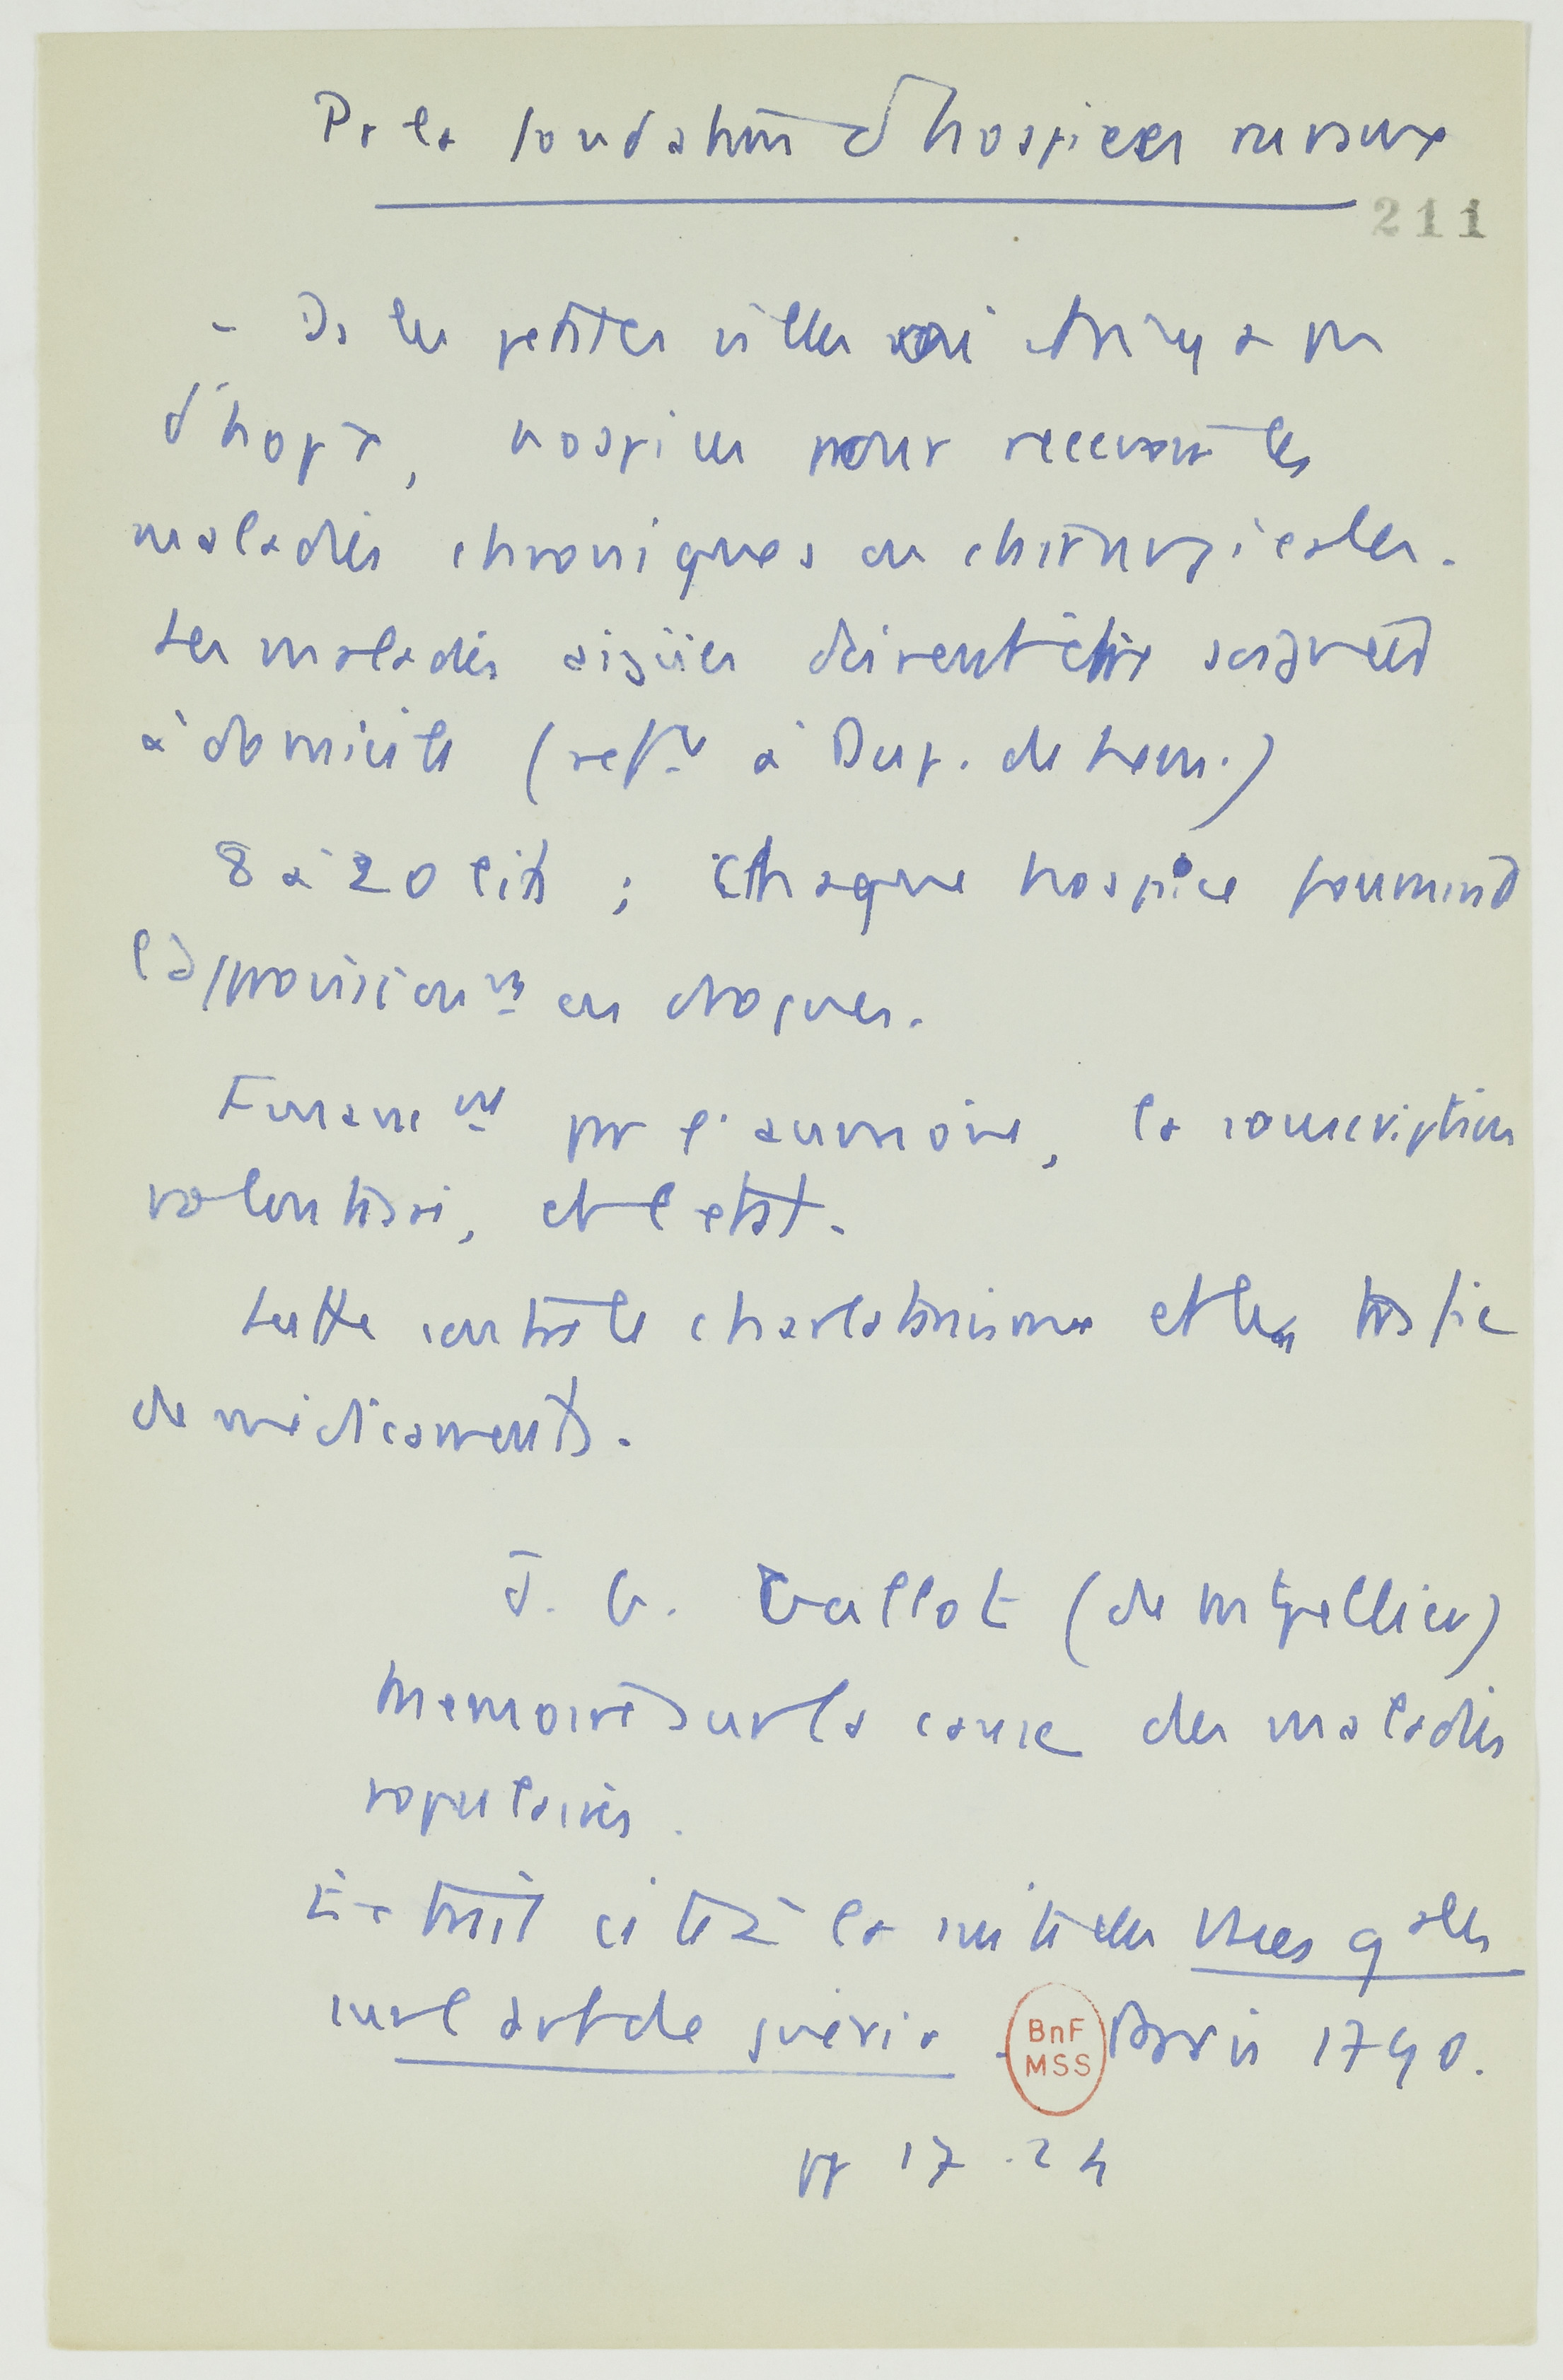 Pr la fondation d'hospices ruraux
211
- Ds les petites villes où il n'y a pas
d'hopx, hospices pour recevoir les
maladies chroniques ou chirurgicales.
Les maladies aigües doivent être soignées
à domicile (ref. à Dup. de Nem.)
8 à 20 lits ; Chaque hospice fournirait
l'approvisionnt en drogues.
Financemt par l'aumône, la souscription
volontaire, et l'etat.
Lutte contre le charlatanisme et le trafic
de médicaments.
J. G. Gallot (de Mtpellier)
Memoire sur la cause des maladies
populaires.
Extrait cité à la suite des Vues gales
sur l'art de guérir. Paris 1790.
BnF
MSS
pp 17-24